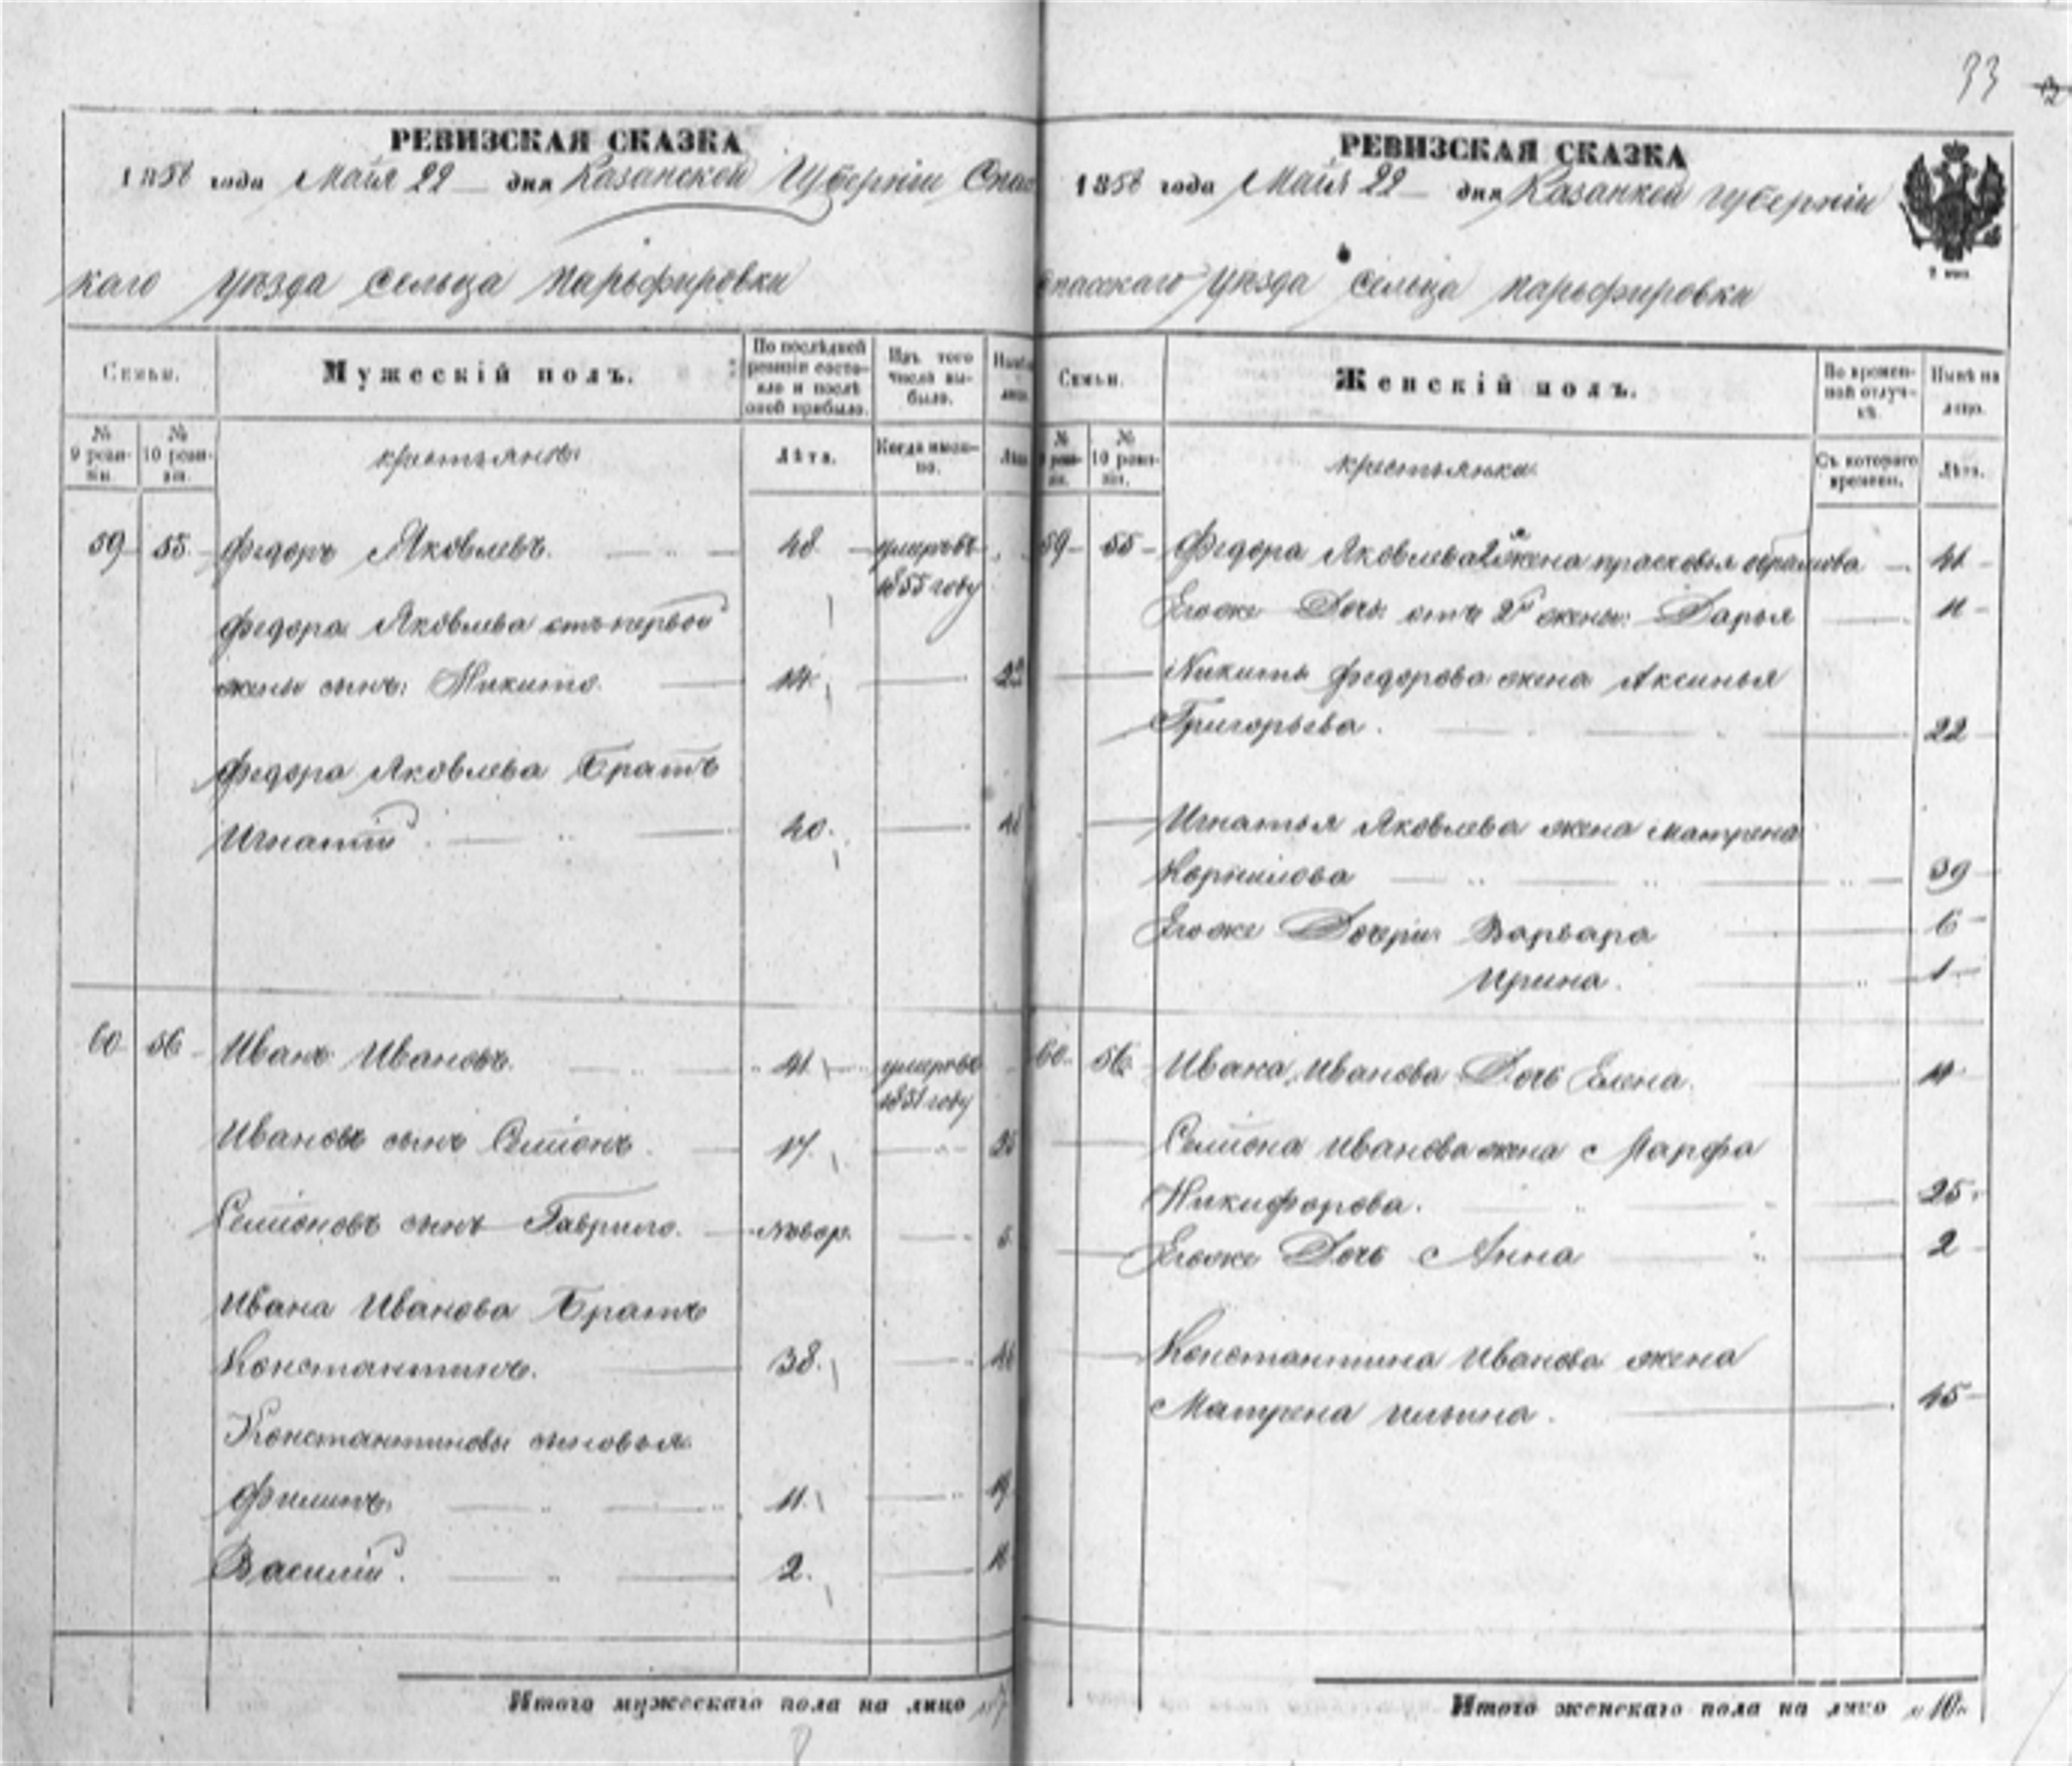 33
РЕВИЗСКАЯ СКАЗКА
1858 года Майя 22 дня Казанской Губернiи Спас
каго уѣзда сельца Парьфировки
Семьи.
Мужескiй полъ.
По послѣдней ревизiи состояло и послѣ оной прибыло.
Изъ того числа выбыло.
№ 9 ревизiи.
№ 10 ревизiи.
крестьянъ
Лѣта.
Когда именно.
59 55 Федоръ Яковлевъ. 48 умеръ въ
1855 году
Федора Яковлева отъ первой
жены сынъ: Никито. 14
Федора Яковлева Братъ
Игнатiй. 40.
60 56 Иванъ Ивановъ. 41 умеръ въ
1851 году
Ивановъ сынъ Семiонъ. 17.
Семiоновъ сынъ Гаврило. Новор.
Ивана Иванова Братъ
Константинъ. 38.
Константиновы сыновья
Филипъ. 11. 19
Василiй. 2.
Итого мужескаго пола на лицо 7
РЕВИЗСКАЯ СКАЗКА
1858 года Майя 22 дня Казанкой губернiи
Спасскаго уѣзда сельца Парьфировки
Семьи.
Женскiй полъ.
Во временной отлучкѣ.
Нынѣ на лицо.
№ 9 ревизiи.
№ 10 ревизiи.
крестьянка
Съ котораго времени.
Лѣта.
59 55 Федора Яковлева 2я жена прасковья 41
Егоже Дочь отъ 2й жены: Дарья 11
Никиты федорова жена Аксинья
Григорьева. 22
Игнатья Яковлева жена матрена
Корнилова 39
Егоже Дочери Варвара 6
Ирина. 1
60. 56 Ивана Иванова Дочь Елена. 11
Семiона Иванова жена Марфа
Никифорова. 25.
Егоже Дочь Анна 2
Константина Иванова жена
Матрена Ильина. 45
Итого женскаго пола на лицо 10